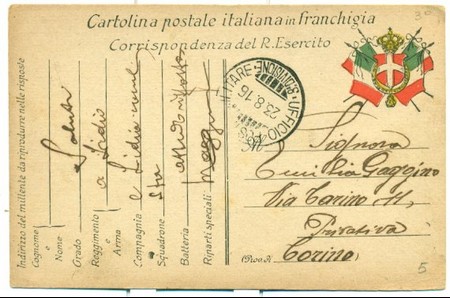 Cartolina postale italiana in franchigia
Corrispondenza del R. Esercito
UFFICIO POSTA MILITARE
23.8.16
Signora
Emilia Gaggino
Via Torino 11
Privativa
Torino
(Prov. di
Indirizzo del mittente da riprodurre nelle risposte
Cognome e
Nome
Grado
Reggimento o
Arma
Compagnia
Squadrone
Batteria
Riparti speciali
Saluti
a Lidio
e Lidia
30
5